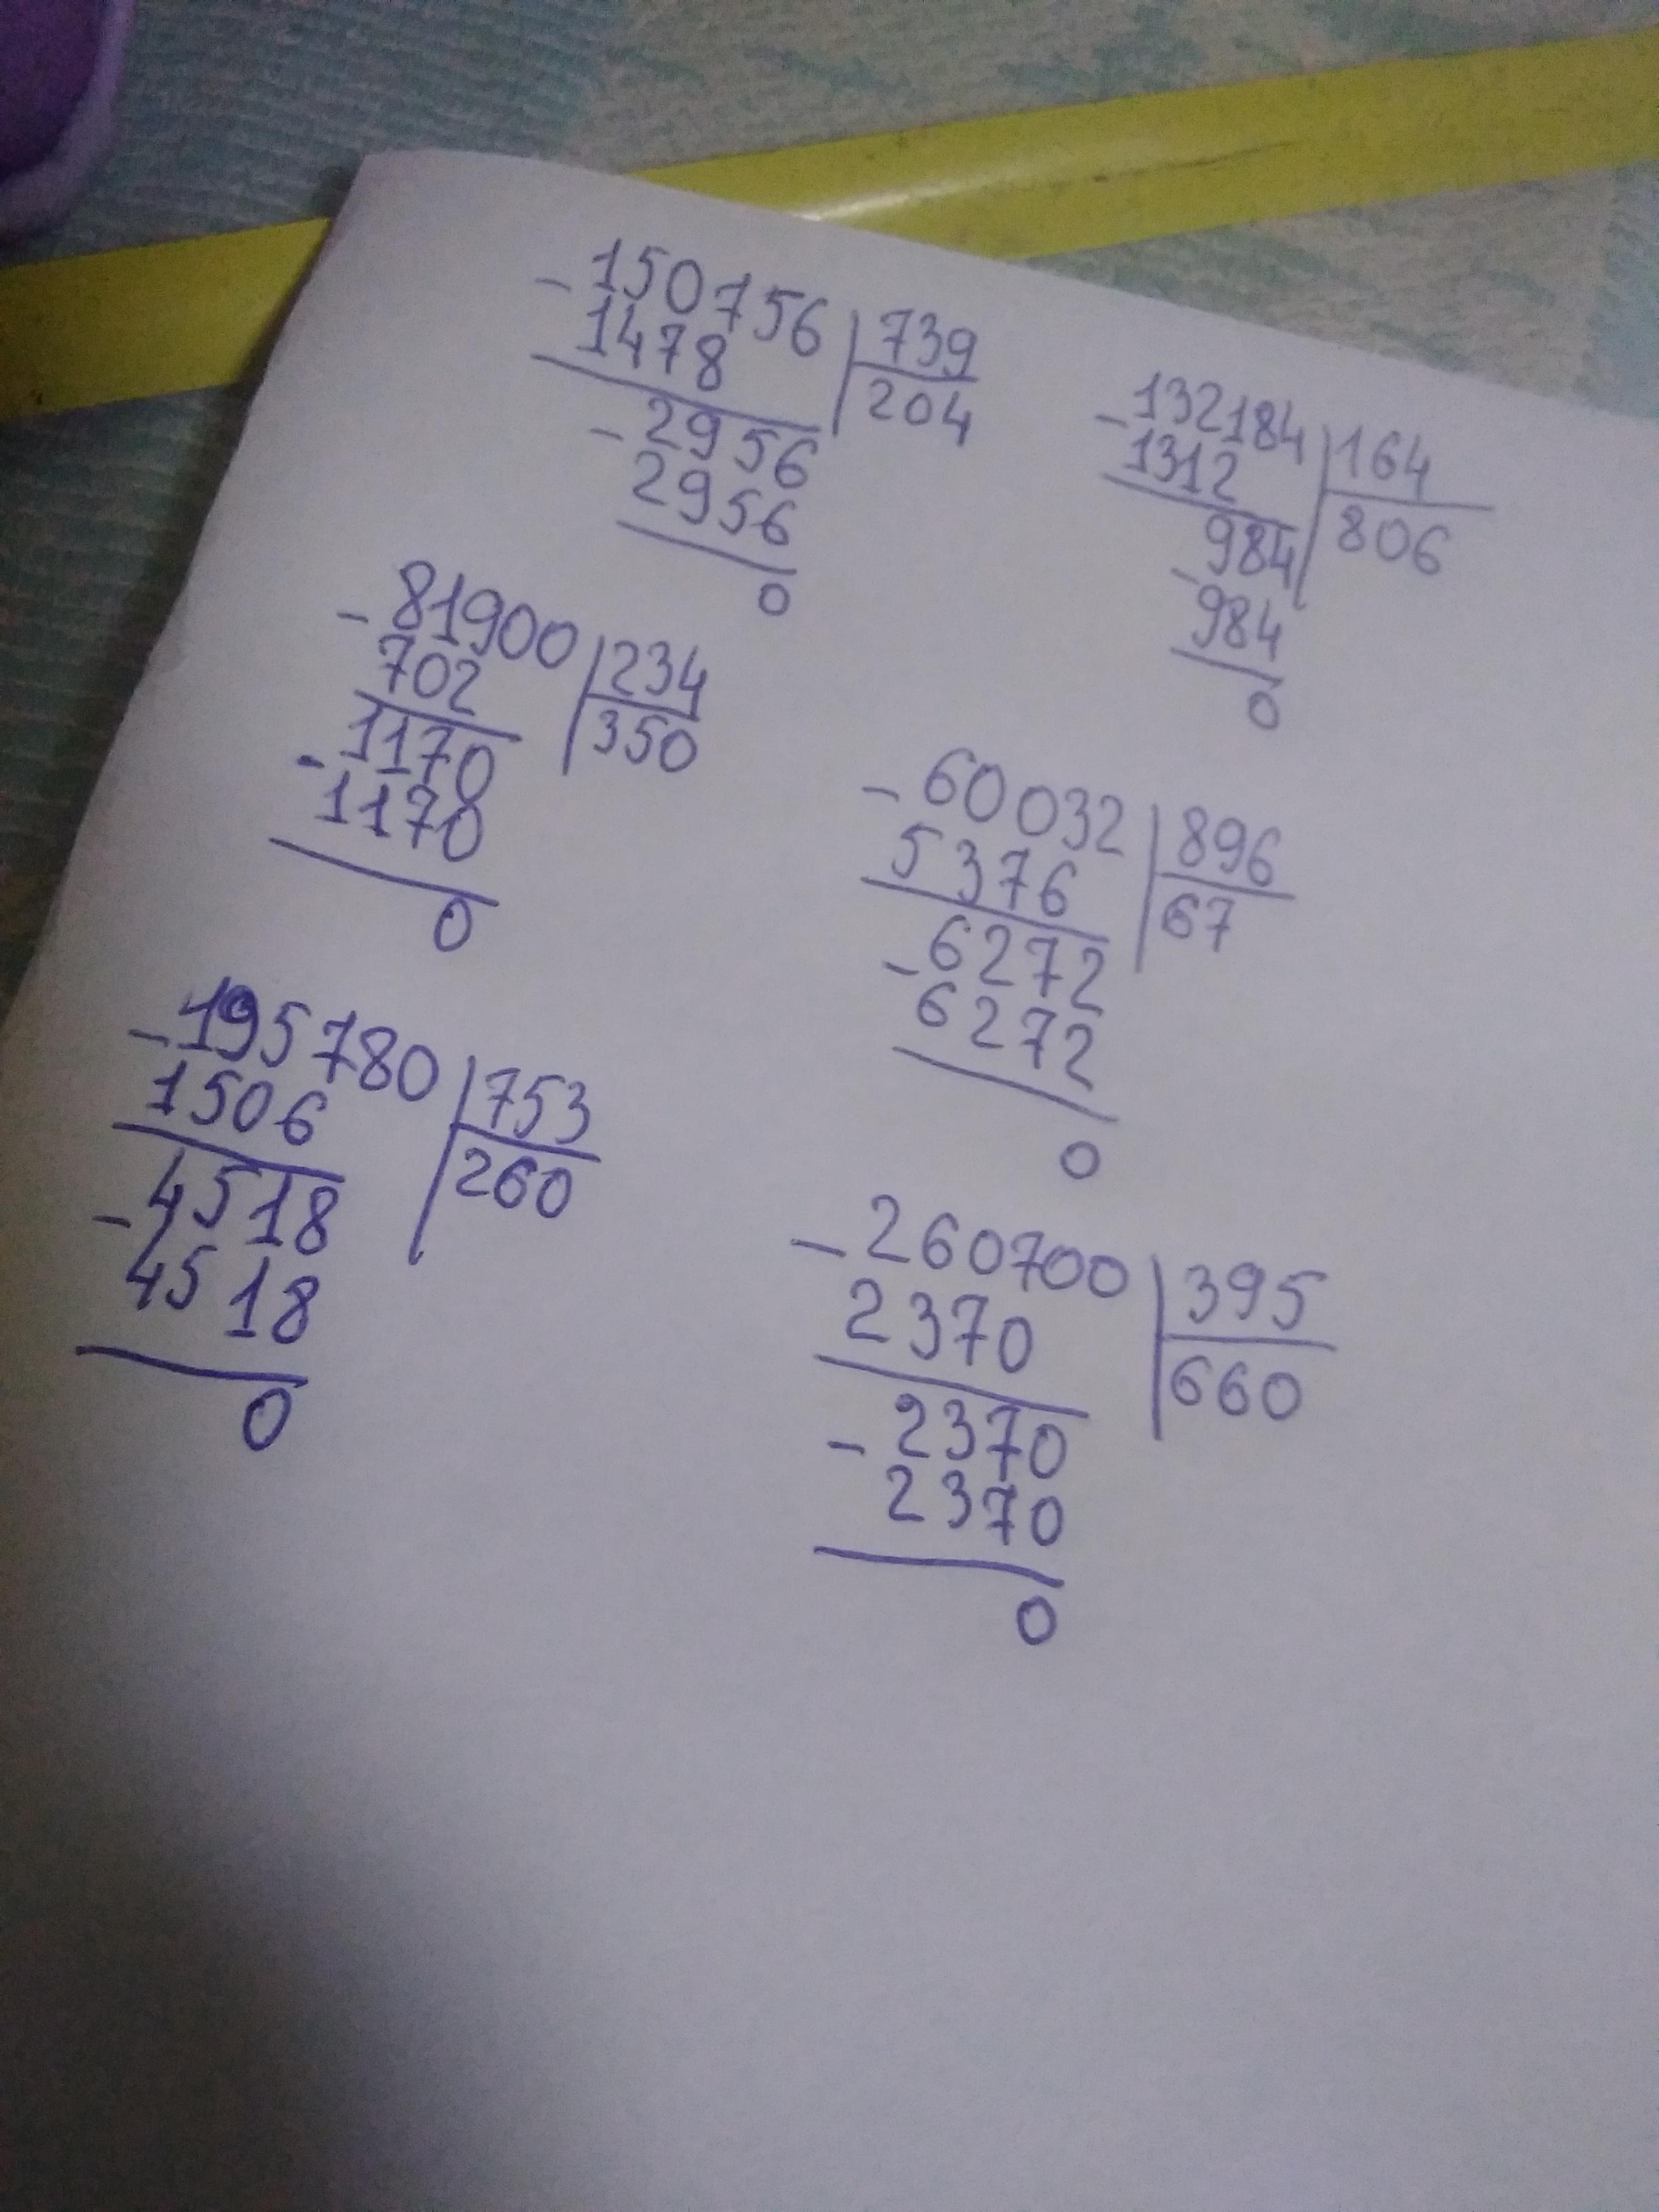 -150756 | 739
1478 | 204
-2956
2956
0
-132184 | 164
1312 | 806
-984
984
0
-81900 | 234
702 | 350
-1170
1170
0
-60032 | 896
5376 | 67
-6272
6272
0
-195780 | 753
1506 | 260
-4518
4518
0
-260700 | 395
2370 | 660
-2370
2370
0